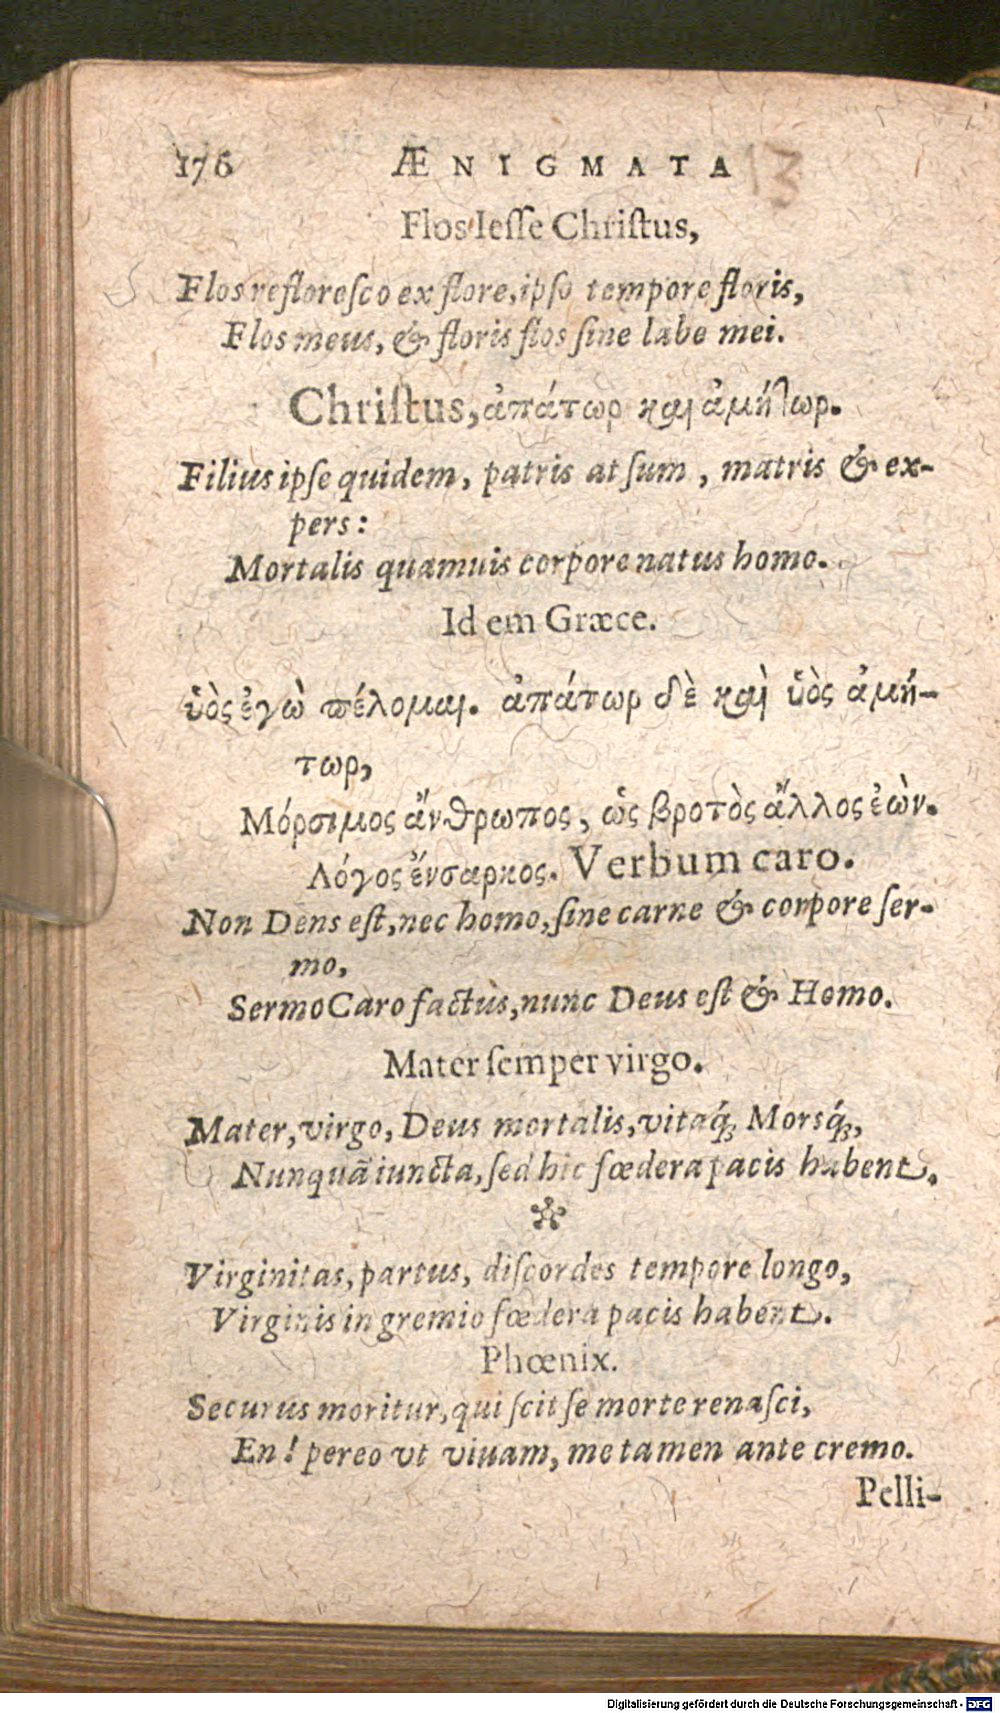 176 ÆNIGMATA 13
Flos Iesse Christus,
Flos refloresco ex flore, ipso tempore floris,
Flos meus, & floris flos sine labe mei.
Christus, ἀπάτωρ καὶ ἀμήτωρ.
Filius ipse quidem, patris at sum, matris & ex-
pers:
Mortalis quamuis corpore natus homo.
Id em Græce.
ὑὸς ἐγὼ πέλομαι. ἀπάτωρ δὲ καὶ ὑὸς ἀμή-
τωρ,
Μόρσιμος ἄνθρωπος, ὡς βροτὸς ἄλλος ἐών.
Λόγος ἔνσαρκος. Verbum caro.
Non Dens est, nec homo, sine carne & corpore ser-
mo,
Sermo Caro factus, nunc Deus est & Homo.
Mater semper virgo.
Mater, virgo, Deus mortalis, vitaq́; Morsq́;,
Nunquā iuncta, sed hic fœdera pacis habent.
Virginitas, partus, discordes tempore longo,
Virginis in gremio fœdera pacis habent.
Phœnix.
Securus moritur, qui scit se morte renasci,
En! pereo vt viuam, me tamen ante cremo.
Pelli-
Digitalisierung gefördert durch die Deutsche Forschungsgemeinschaft - DFG